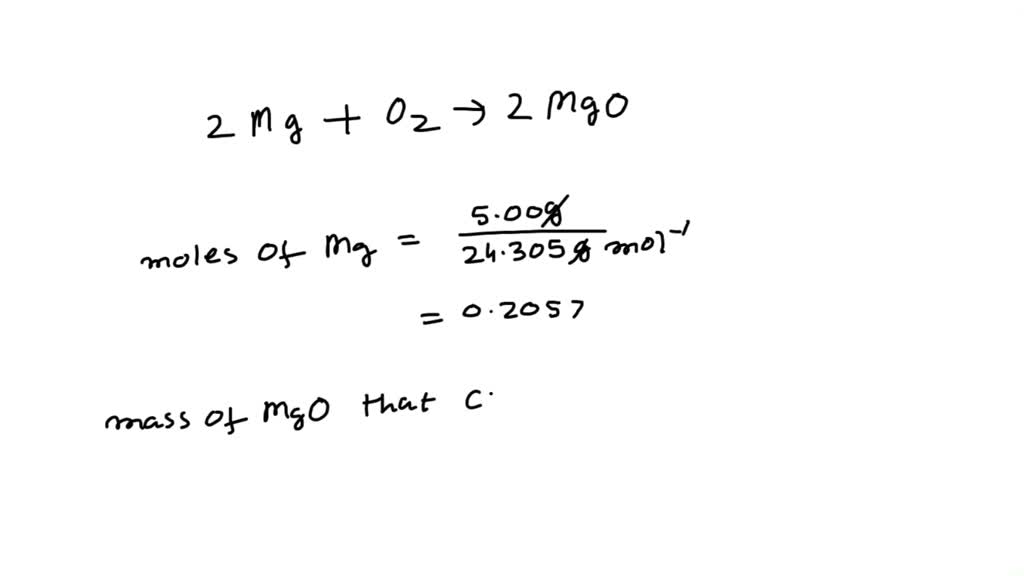 2 Mg + O2 → 2 MgO
moles of Mg = 5.00g / 24.305 g mol⁻¹
= 0.2057
mass of MgO that c